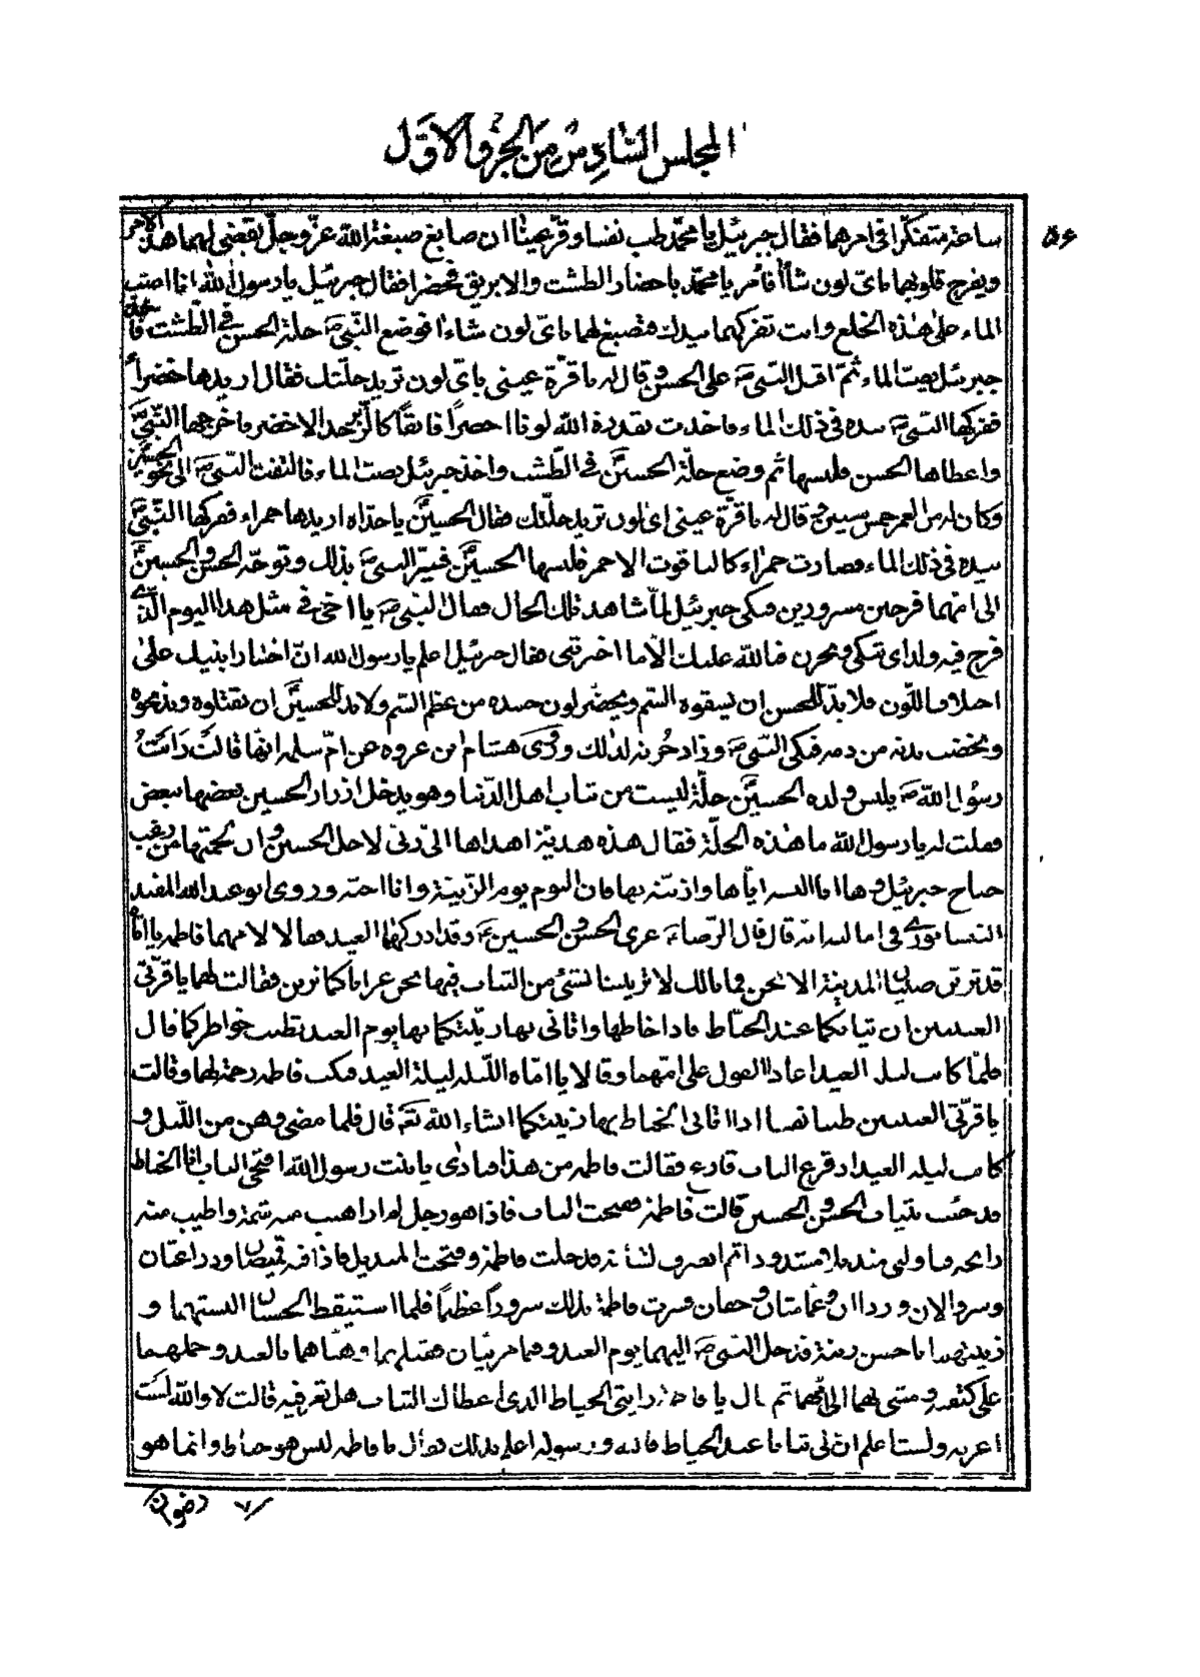 المجلس السادس من الجزؤ الاول
٥٦
ساعة متفكرا في امرهما فقال جبرئيل يا محمد طب نفسا وقر عينا ان صابغ صبغة الله عز وجل يقضي لهما هذا الامر
ويفرح قلوبهما باي لون شاأ فأمر يا محمد باحضار الطشت والابريق فحضرا فقال جبرئيل يا رسول الله انا اصب
الماء على هذه الخلع وانت تفركهما بيدك فتصبغ لهما باي لون شاءا فوضع النبي ص حلة الحسن في الطشت فأخذ
جبرئيل يصب الماء ثم اقبل النبي ص على الحسن وقال له يا قرة عيني باي لون تريد حلتك فقال اريدها خضرأ
ففركها النبي ص بيده في ذلك الماء فاخذت بقدرة الله لونا اخضرا فايقا كالزبرجد الاخضر فاخرجها النبي ص
واعطاها الحسن فلبسها ثم وضع حلة الحسين في الطشت واخذ جبرئيل يصب الماء فالتفت النبي ص الى نحو الحسين
وكان له من العمر خمس سنين وقال له يا قرة عيني اي لون تريد حلتك فقال الحسين يا جداه اريدها حمراء ففركها النبي ص
بيده في ذلك الماء فصارت حمراء كالياقوت الاحمر فلبسها الحسين فسر النبي ص بذلك وتوجه الحسن والحسين
الى امهما فرحين مسرورين فبكى جبرئيل لما شاهد تلك الحال فقال النبي ص يا اخي في مثل هذا اليوم الذي
فرح فيه ولداي تبكي وتحزن فبالله عليك الا ما اخبرتني فقال جبرئيل اعلم يا رسول الله ان اختيار ابنيك على
اختلاف اللون فلا بد للحسن ان يسقوه السم ويخضر لون جسده من عظم السم ولا بد للحسين ان يقتلوه ويذبحوه
ويخضب بدنه من دمه فبكى النبي ص وزاد حزنه لذلك وروى هشام بن عروه عن ام سلمه انها قالت رأيت
رسول الله ص يلبس ولده الحسين حلة ليست من ثياب اهل الدنيا وهو يدخل ازرار الحسين بعضها ببعض
فقلت له يا رسول الله ما هذه الحلة فقال هذه هدية اهداها الي ربي لاجل الحسين وان لحمتها من زغب
جناح جبرئيل وها انا البسه اياها وازينه بها فان اليوم يوم الزينة وانا احبه وروى ابو عبد الله المفيد
النيسابوري في اماليه انه قال قال الرضاء عري الحسن والحسين ع وقد ادركهما العيد فقالا لامهما فاطمه يا اماه
قد تزين صبيان المدينة الا نحن فما بالك لا تزيننا بشئ من الثياب فها نحن عرايا كما ترين فقالت لهما يا قرتي
العينين ان ثيابكما عند الخياط فاذا خاطها واتاني بها زينتكما بها يوم العيد تطيب خواطركما قال
فلما كانت ليلة العيد اعادا القول على امهما وقالا يا اماه الليله ليلة العيد فبكت فاطمه رحمة لهما وقالت
يا قرتي العينين طيبا نفسا اذا اتاني الخياط بها زينتكما انشاء الله تعم قال فلما مضى وهن من الليل و
كانت ليله العيد اذ قرع الباب قارع فقالت فاطمه من هذا فنادى يا بنت رسول الله افتحي الباب انا الخياط
قد جئت بثياب الحسن والحسين قالت فاطمة ففتحت الباب فاذا هو رجل لم ار اهيب منه شيمة واطيب منه
رايحه فناولني منديلا مشدودا ثم انصرف لشأنه فدخلت فاطمة وفتحت المنديل فاذا فيه قميصان ودراعتان
وسروالان وردا ان وعمامتان وخفان فسرت فاطمة بذلك سرورا عظيما فلما استيقظ الحسنان البستهما و
زينتهما باحسن زينة فدخل النبي ص اليهما يوم العيد وهما مزينان فقبلهما وهناهما بالعيد وحملهما
على كتفيه ومشى بهما الى امهما ثم قال يا فاطمة رايتي الخياط الذي اعطاك الثياب هل تعرفيه قالت لا والله لست
اعرفه ولست اعلم ان لي ثيابا عند الخياط فالله ورسوله اعلم بذلك فقال يا فاطمه ليس هو خياط وانما هو
رضوان